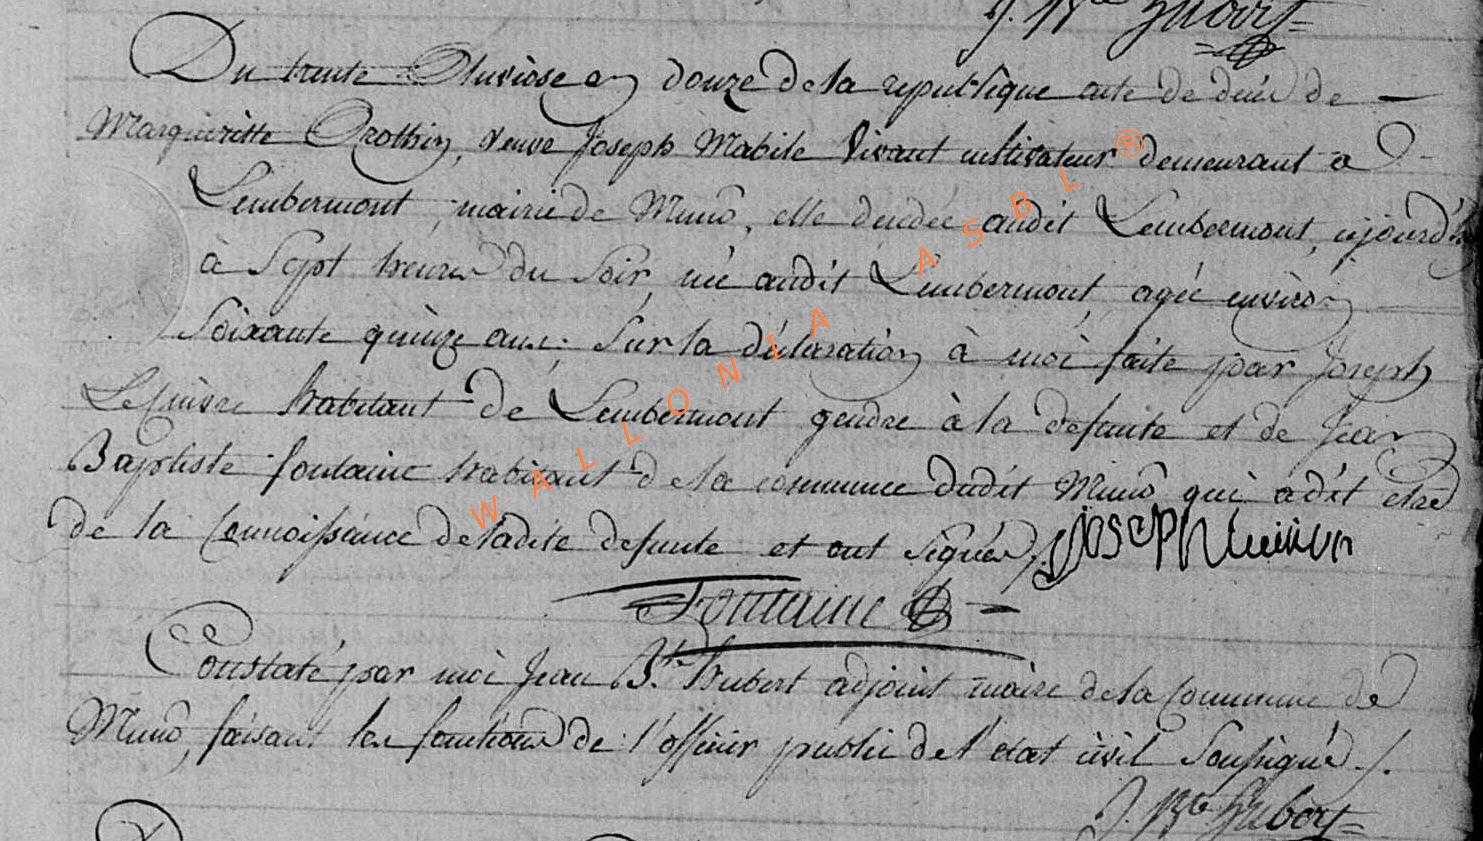 J. Bte Hubert
Du trente Pluviose an douze de la republique acte de decès de
Margueritte Prothin, veuve Joseph Mabile vivant cultivateur demeurant a
Lembermont mairie de Muno, elle decedée audit Lembermont, aujourd'hui
à Sept heures du soir, née audit Lembermont, agée environ
soixante quinze ans; Sur la déclaration à moi faite par Joseph
habitant de Lembermont gendre à la defunte et de Jean
Baptiste fontaine habitant de la commune dudit Muno qui a dit etre
de la Connoissance de ladite defunte et ont signés /. Joseph
Fontaine
Constaté par moi Jean Bte hubert adjoint maire de la Commune de
Muno, faisant les fonctions de l'officier public de l'etat civil Soussigné /.
J. Bte Hubert
WALLONIA ASBL ®